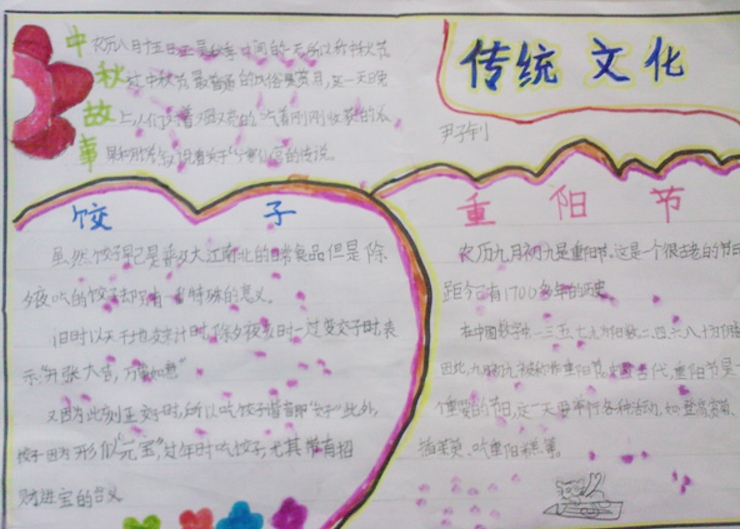 中秋故事
农历八月十五日正是秋季中间的一天所以称中秋节
在中秋节最普遍的风俗是赏月,这一天晚
上,人们着又圆又亮的吃着刚刚收获的瓜
果和月饼,叙说着关于的传说。
传统 文化
饺 子
虽然饺子早已是普及大江南北的日常食品但是除
夕夜吃的饺子却又有一番特殊的意义。
旧时以天干地支来计时,除夕夜亥时一过变交子时,表
示"开张大吉,万事如意"
又因为此刻正交子时,所以吃饺子谐音即"交子"此外,
饺子因为形似"元宝",过年时吃饺子,尤其带有招
财进宝的含义
重 阳 节
农历九月初九是重阳节,这是一个很古老的节日
距今已有1700多年的历史
在中国数字中一三五七九为阳数二四六八十为
因此,九月初九被称作重阳节。古代,重阳节是一
个重要的节日,这一天要举行各种活动,如登高赏菊、
插茱萸、吃重阳糕等。